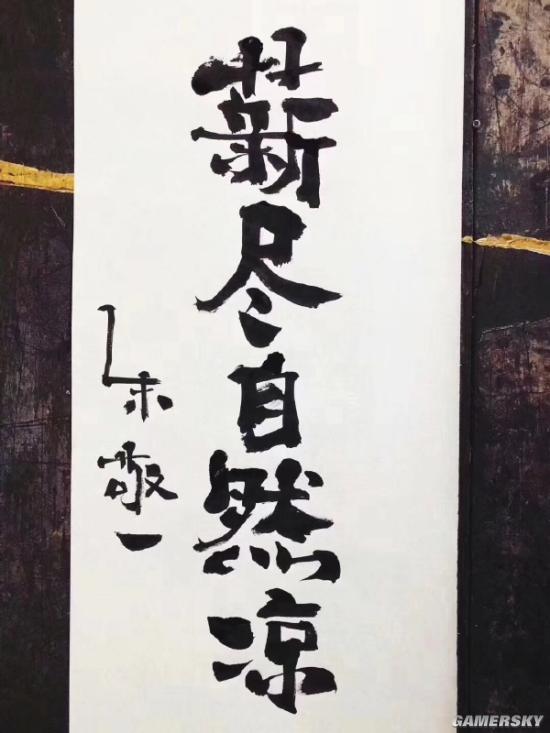 薪尽自然凉
朱敬一
GAMERSKY